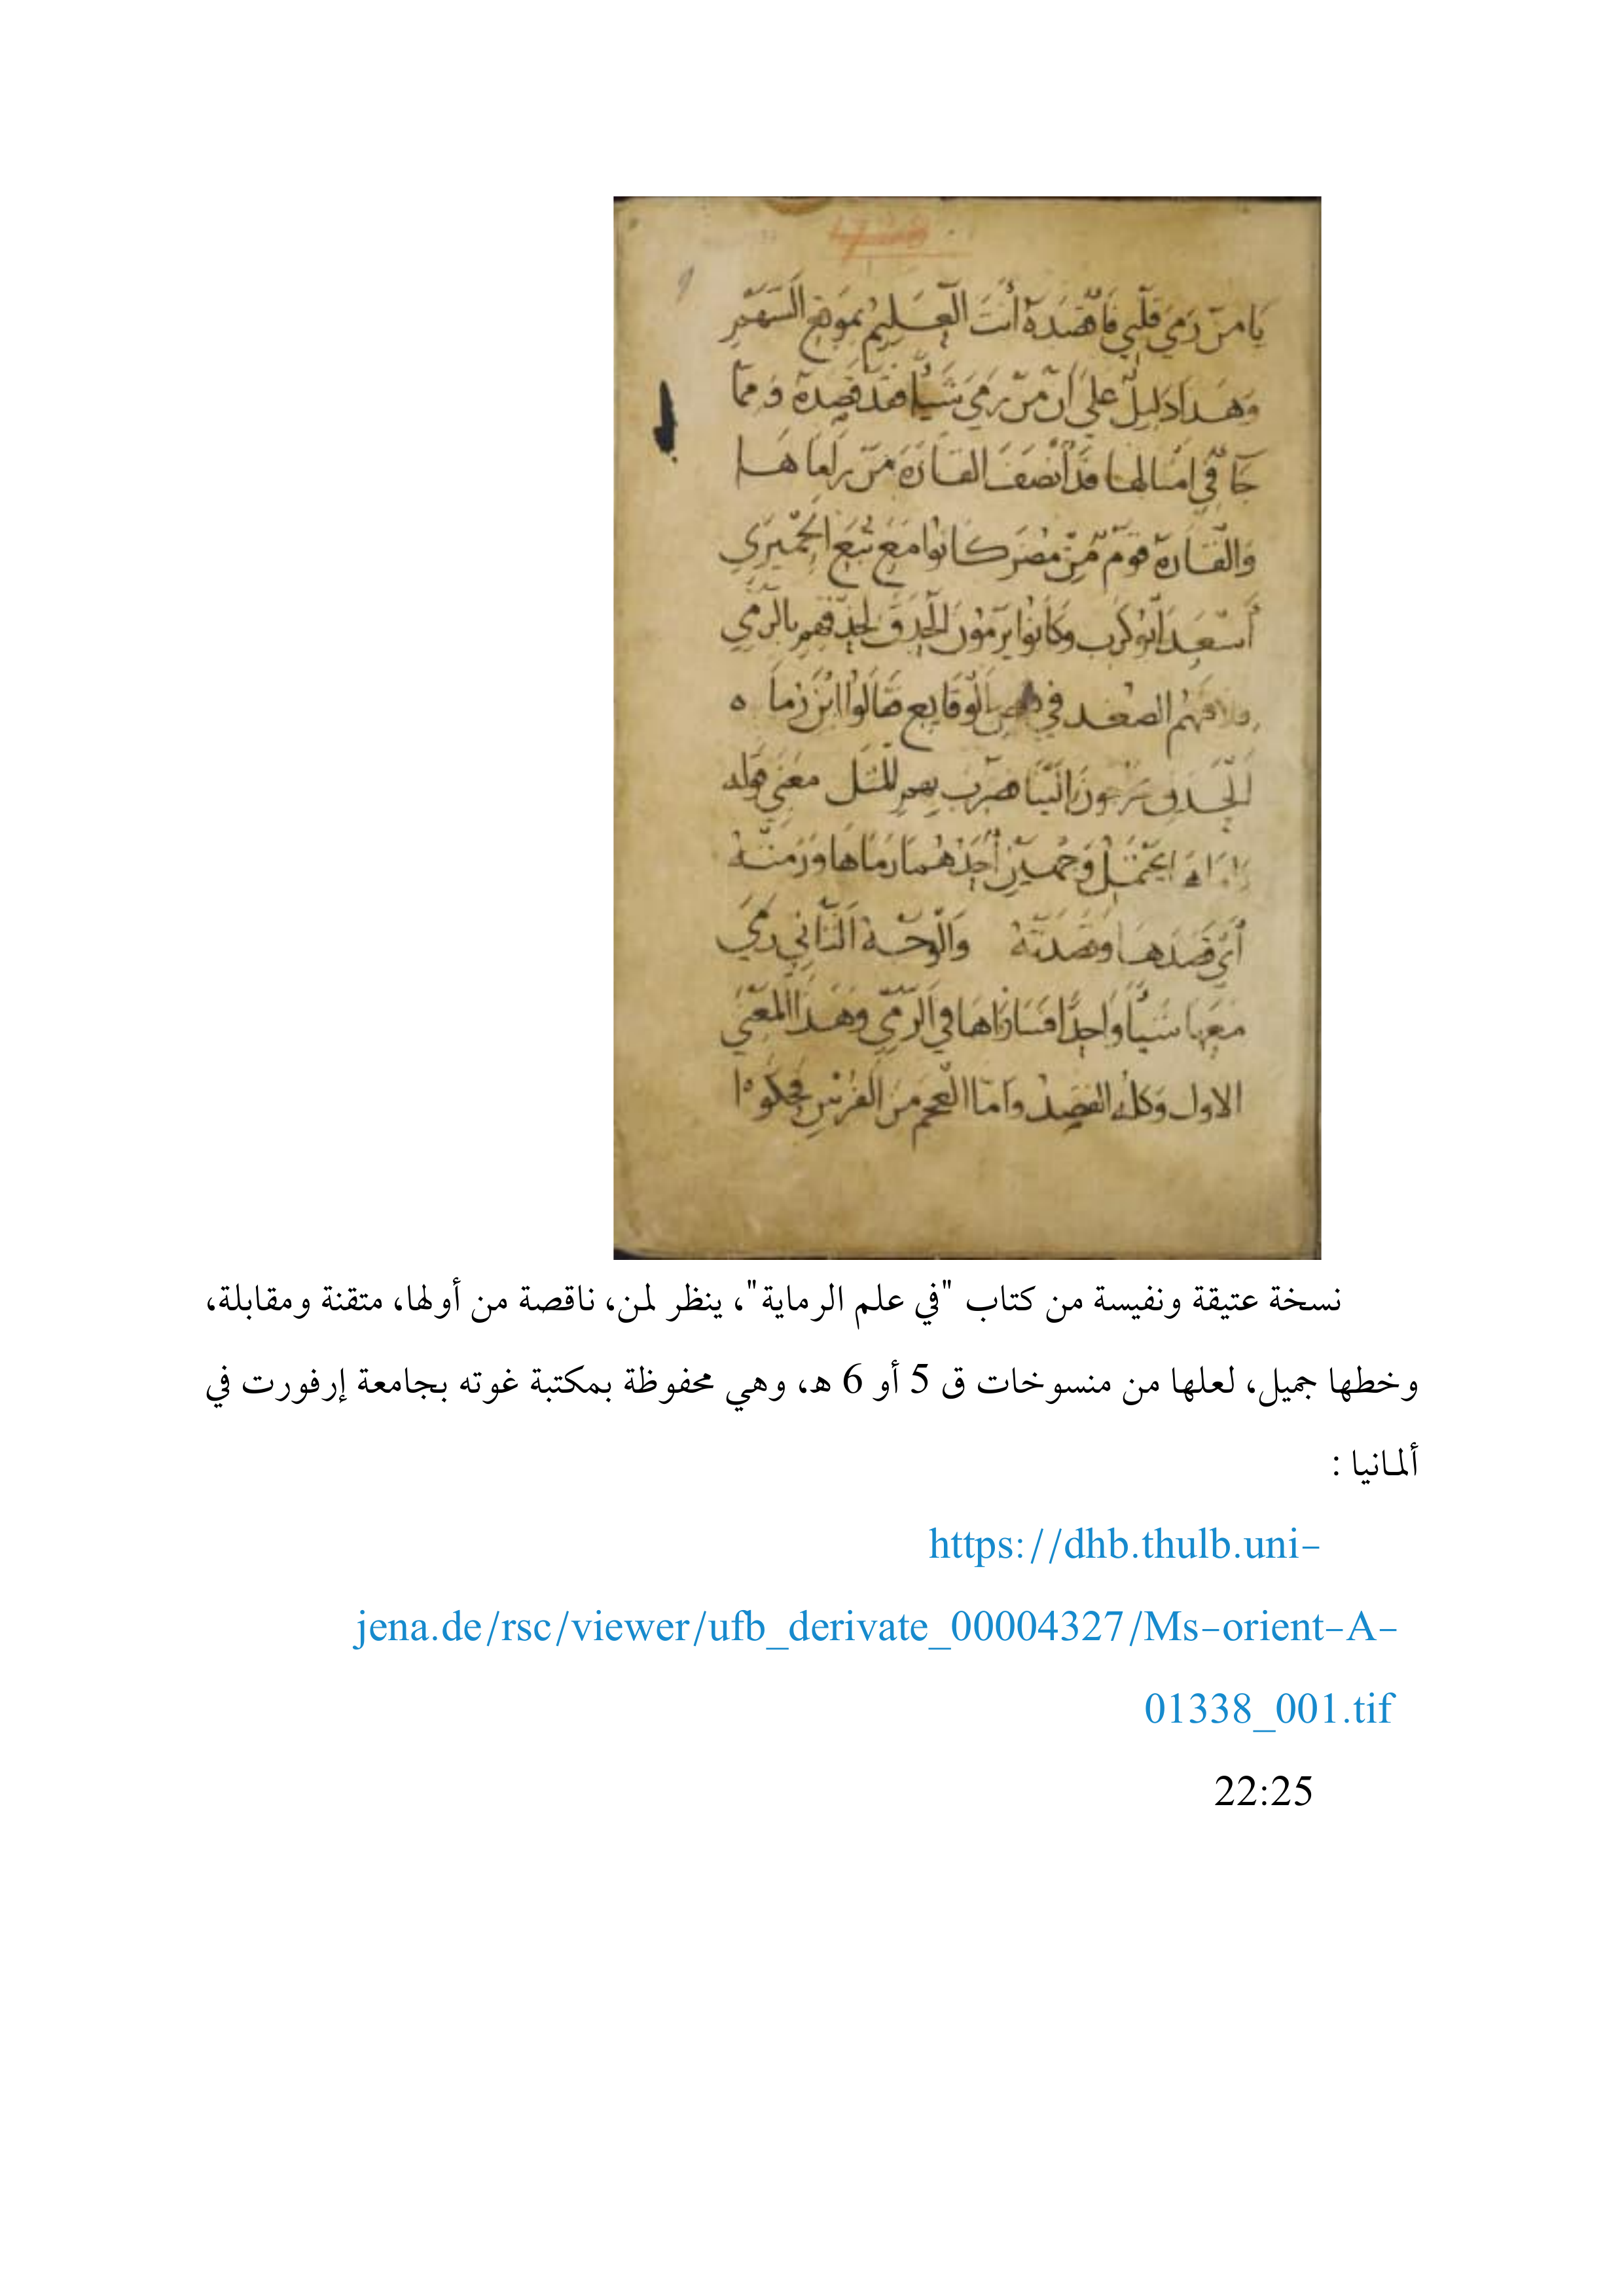 يَا مَنْ رَمَى قَلْبِي فَأَقْصَدَهُ أَنْتَ الْعَلِيمُ بِمَوْضِعِ السَّهْمِ
وَهَذَا دَلِيلٌ عَلَى أَنَّ مَنْ رَمَى شَيْئًا فَقَدْ قَصَدَهُ وَمِمَّا
جَآ فِي امثالها قَدْ أَنْصَفَ القَارَةَ مَنْ رَامَاهَا
وَالْقَارَة قَوْمٌ مِنْ مُضَرَ كَانُوا مَعَ تُبَّع الْحِمْيَرِي
أَسْعَد أَبُو كَرِب وكَانُوا يَرْمُونَ الْحَدَقَ لِحِذْقِهِمْ بِالرَّمْيِ
الصغد في الْوَقَايِع فَقَالُوا ابْنَ رُمَا ه
الْحَدَق الَيْنَا فَضُرِبَ بِهِم المَثَل مَعْنَى قوله
يَحْتَمِل وَجْهَيْنِ أَحَدُهُمَا رَمَاهَا وَرَمَتْهُ
أَيْ قَصَدَهَا وَقَصَدَتْهُ وَالْوَجْه الثَّانِي رَمَى
مَعَهَا شَيْئًا وَاحِدًا فِي الرَّمْيِ وَهَذَا الْمَعْنَى
الاول وَكُلُّهُ القصد وأمَّا الْعَجَم مِنَ الْفُرْسِ فَحَكَوْا
نسخة عتيقة ونفيسة من كتاب "في علم الرماية"، ينظر لمن، ناقصة من أولها، متقنة ومقابلة،
وخطها جميل، لعلها من منسوخات ق 5 أو 6 هـ، وهي محفوظة بمكتبة غوته بجامعة إرفورت في
ألمانيا :
https://dhb.thulb.uni-
jena.de/rsc/viewer/ufb_derivate_00004327/Ms-orient-A-
01338_001.tif
22:25